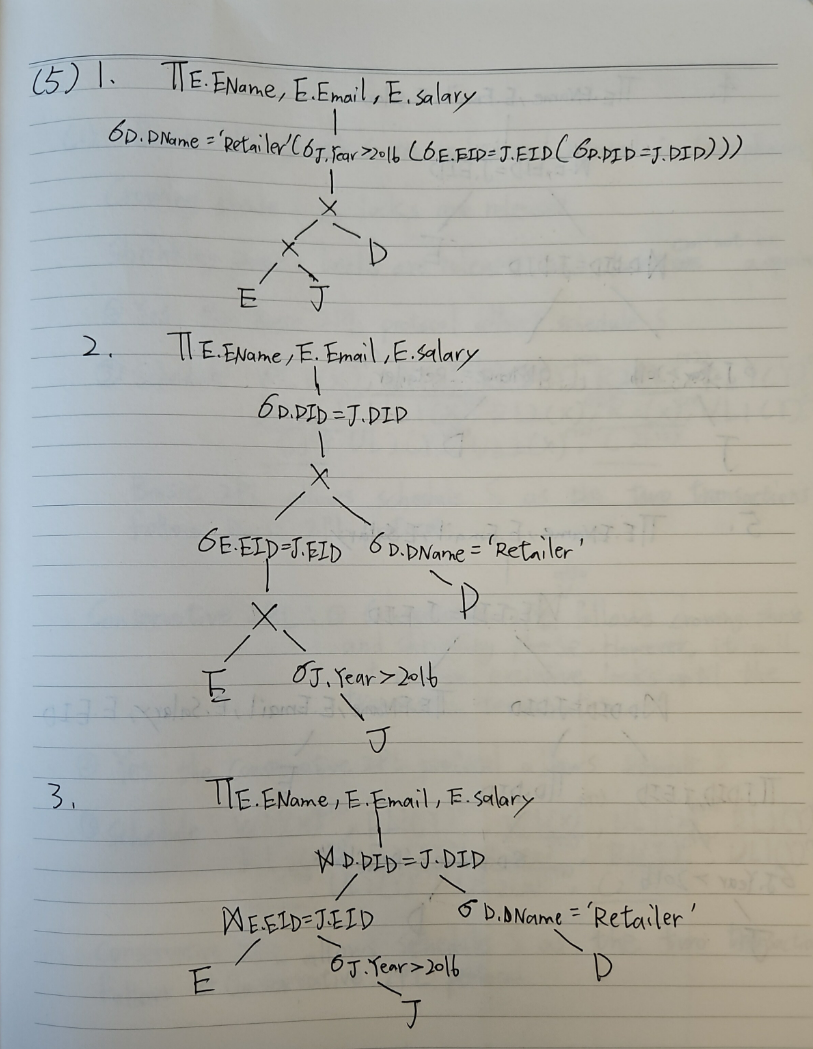 (5) 1. ΠE.EName, E.Email, E.salary
σD.DName='Retailer'(σJ.Year>2016 (σE.EID=J.EID(σD.DID=J.DID)))
×
× D
E J
2. ΠE.EName, E.Email, E.salary
σD.DID=J.DID
×
σE.EID=J.EID σD.DName='Retailer'
× D
E σJ.Year>2016
J
3. ΠE.EName, E.Email, E.salary
⋈D.DID=J.DID
⋈E.EID=J.EID σD.DName='Retailer'
E σJ.Year>2016 D
J